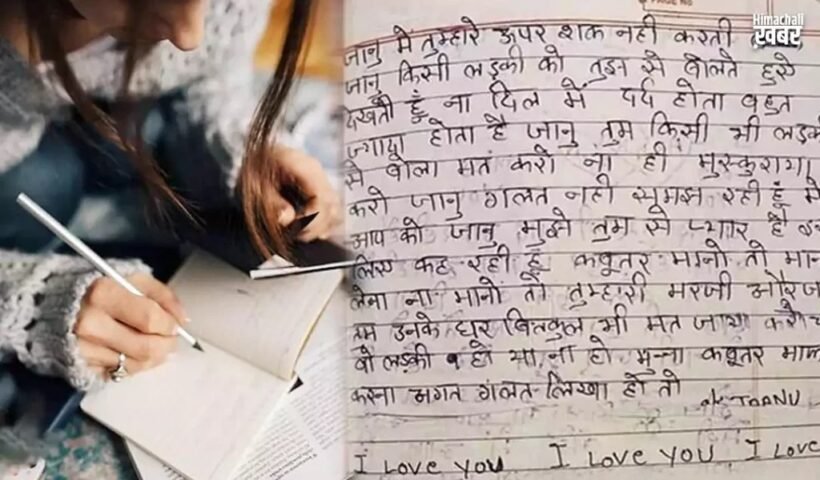 Himachali
खबर
जानु में तुम्हारे ऊपर शक नही करती
जानु किसी लड़की को तुझ से बोलते हुऐ
देखती हूँ ना दिल में दर्द होता बहुत
ज्यादा होता है जानु तुम किसी भी लड़की
से बोला मत करो ना ही मुस्कुराया
करो जानु गलत नही समझ रही हूँ में
आप को जानु मुझे तुम से प्यार है
लिए कह रही हूँ कबूतर मानो तो मान
लेना ना मानो तो तुम्हारी मरजी और
तुम उनके घर बिलकुल भी मत जाया करो
वो लड़की हो या ना हो मुन्ना कबूतर माफ
करना अगत गलत लिखा हो तो ok JAANU
I Love you I Love you I Love